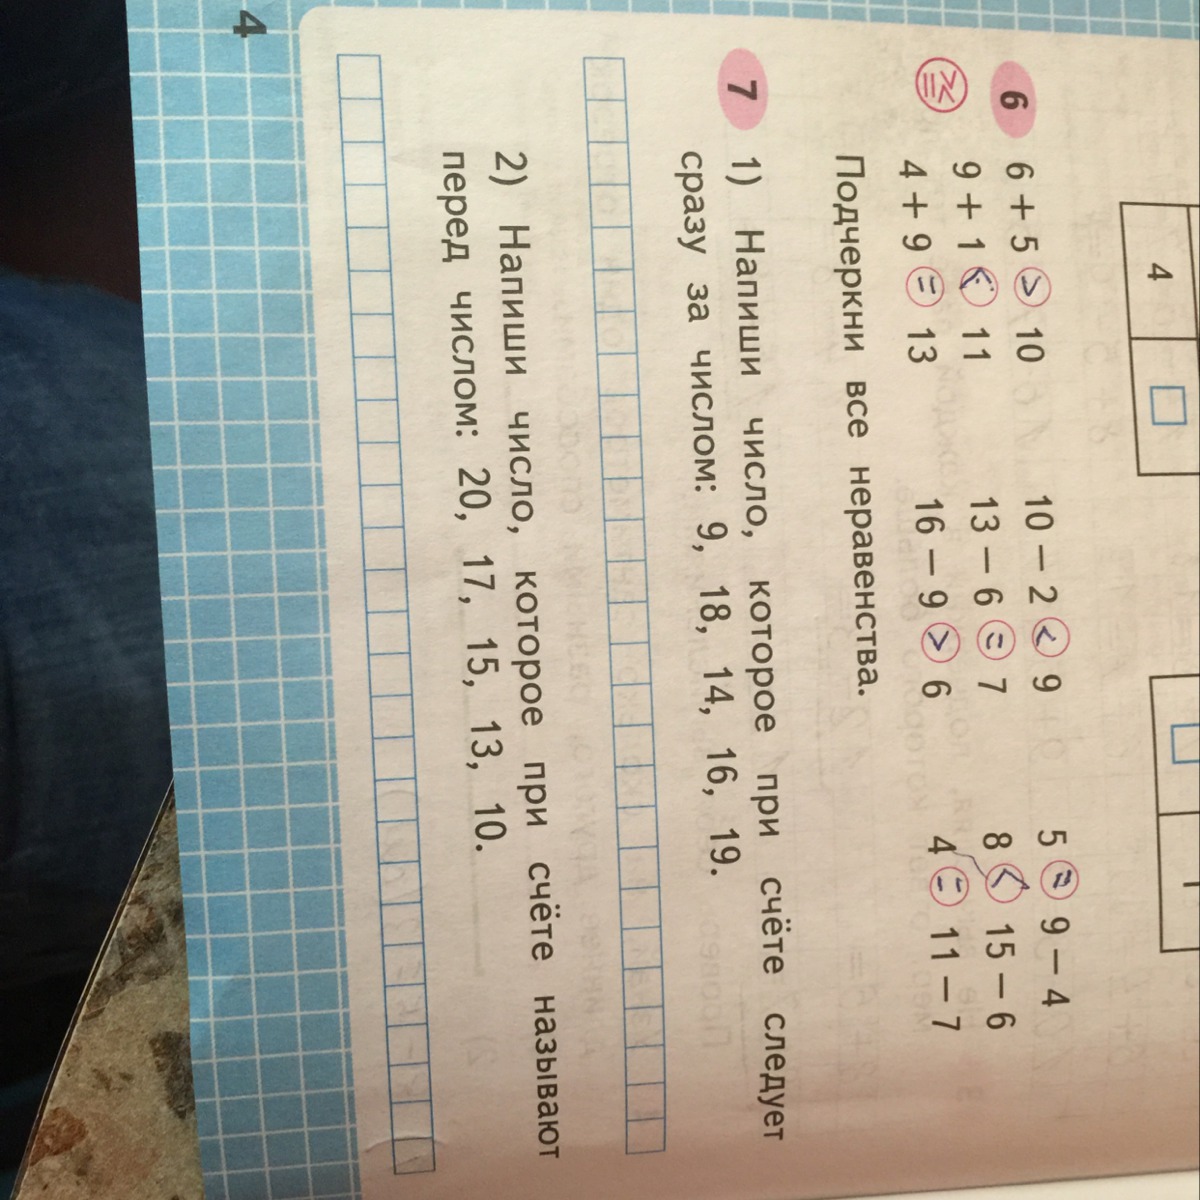 4 □ □
6 6 + 5 > 10 10 − 2 < 9 5 = 9 − 4
9 + 1 < 11 13 − 6 = 7 8 < 15 − 6
4 + 9 = 13 16 − 9 > 6 4 = 11 − 7
Подчеркни все неравенства.
7 1) Напиши число, которое при счёте следует
сразу за числом: 9, 18, 14, 16, 19.
2) Напиши число, которое при счёте называют
перед числом: 20, 17, 15, 13, 10.
4